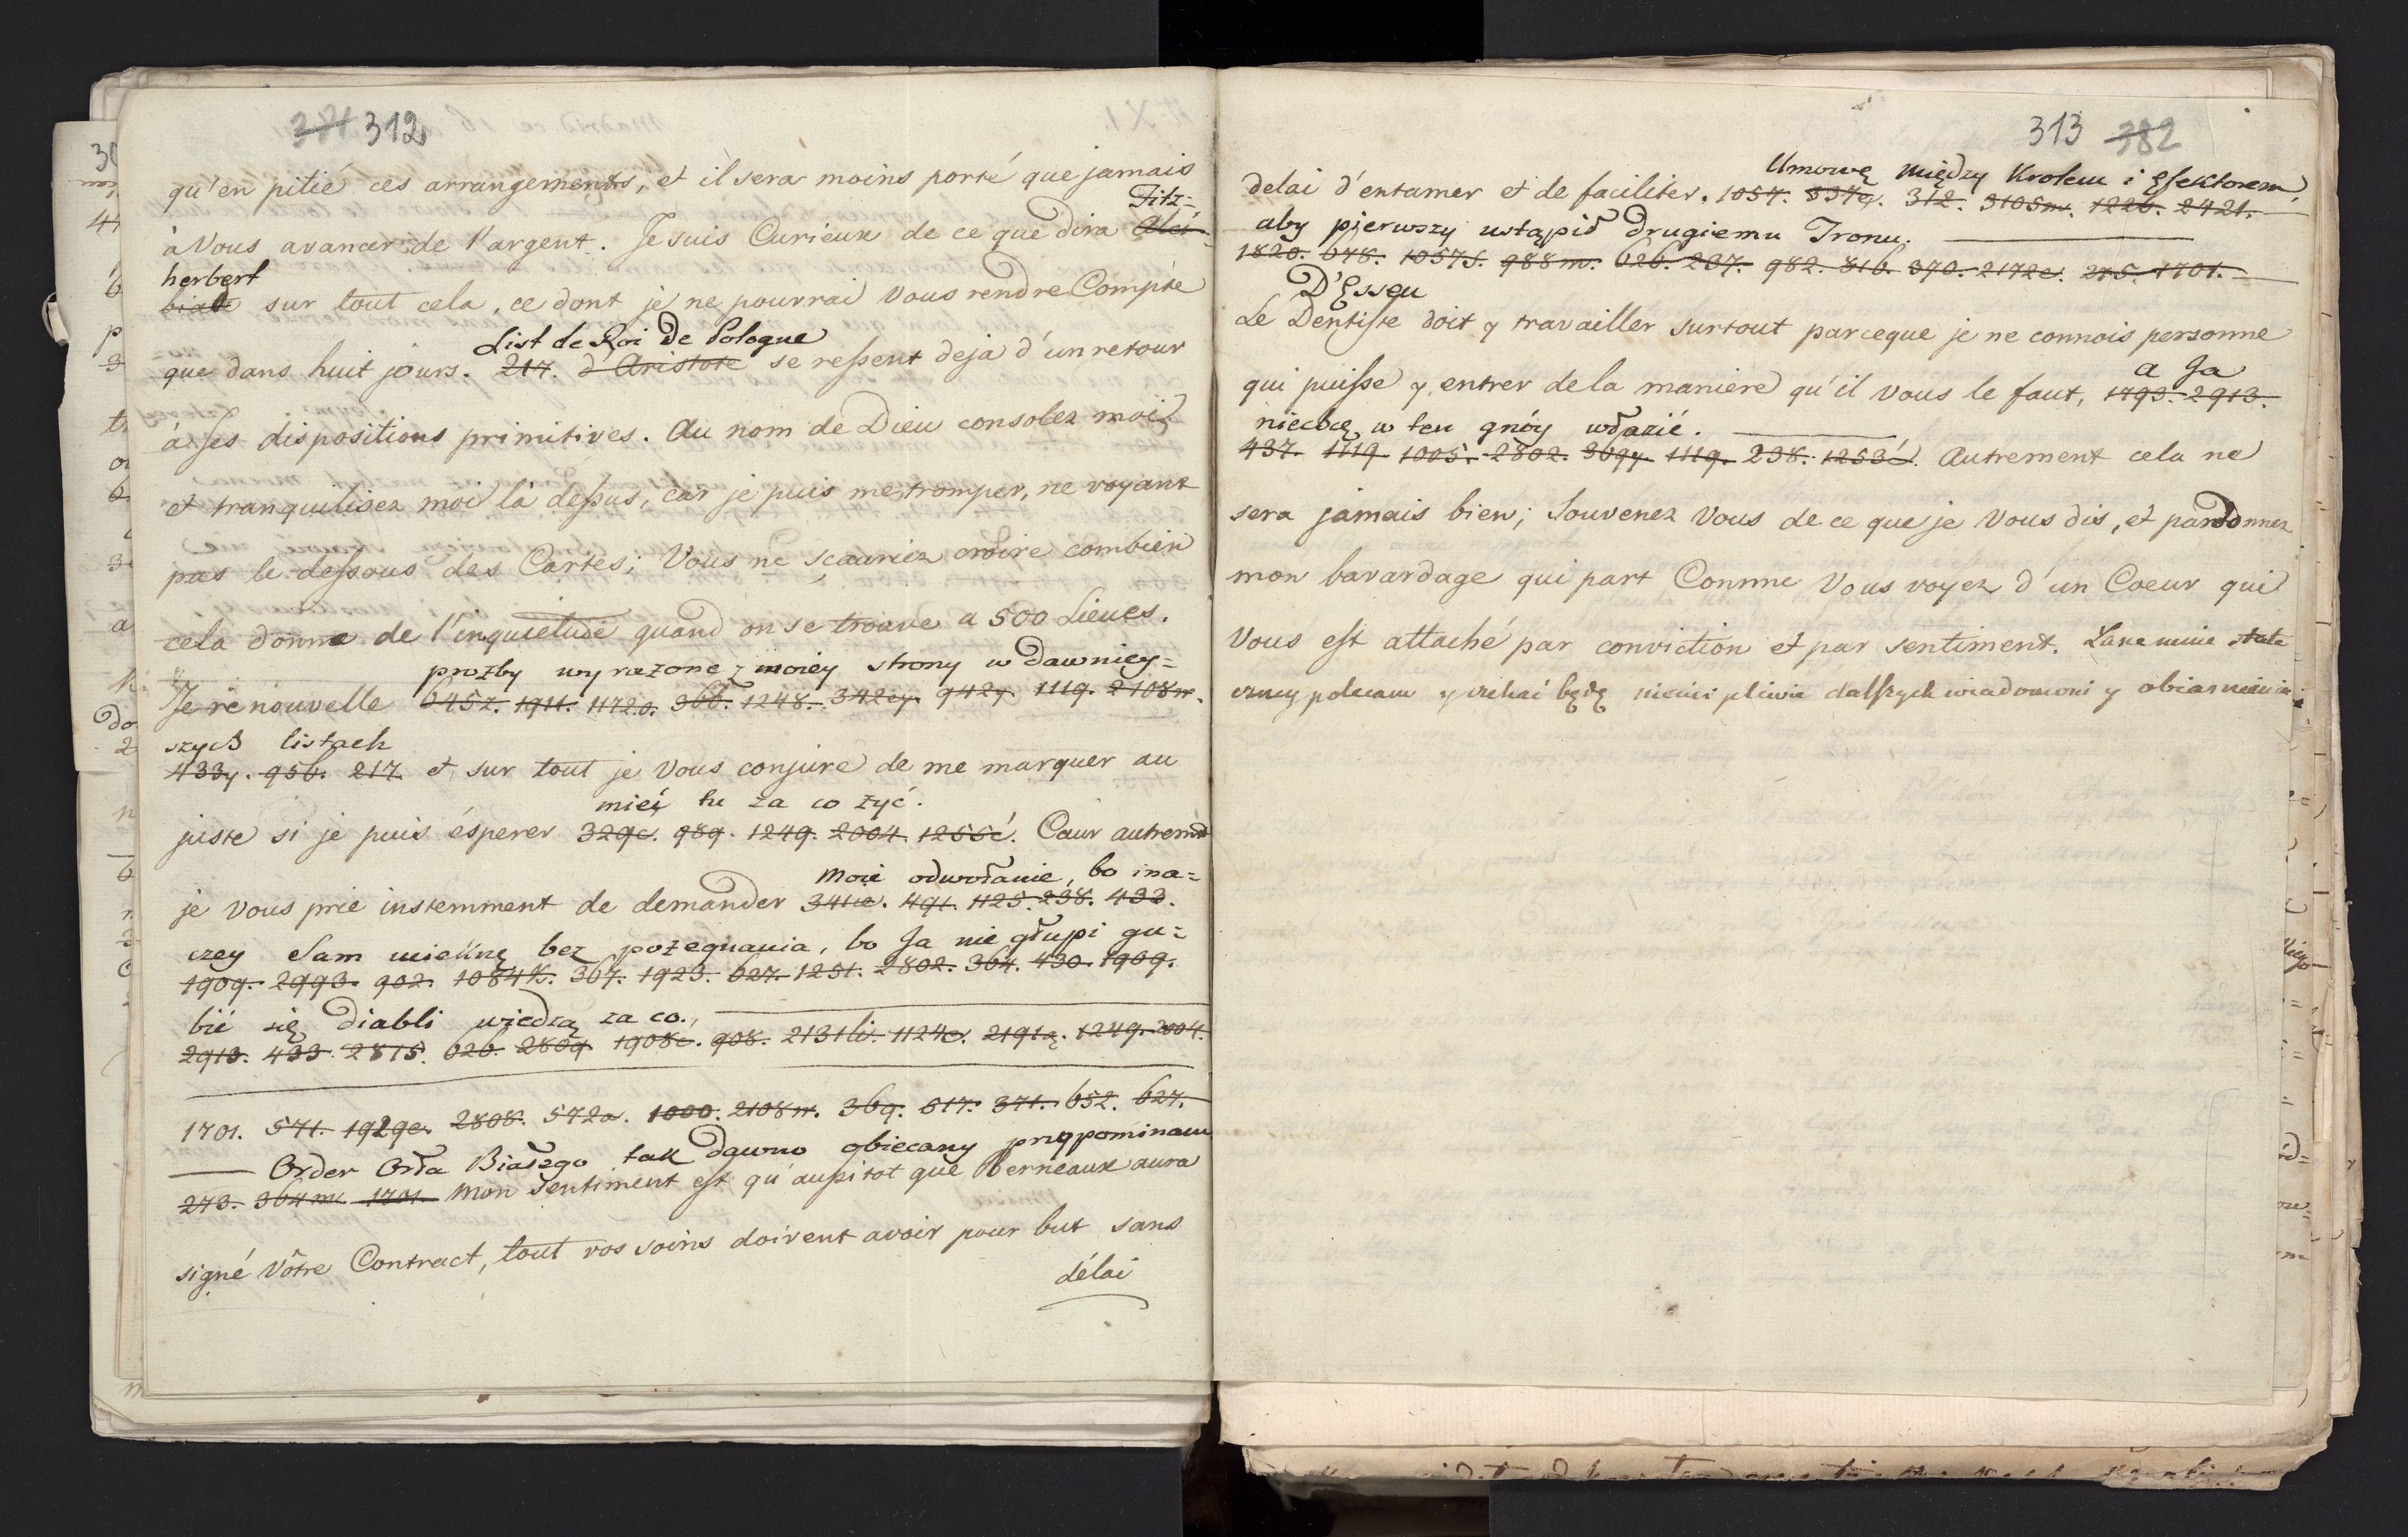 371 312
qu'en pitié ces arrangements, et il sera moins porté que jamais
Fitz=
à Vous avancer de l'argent. Je suis Curieux de ce que dira Alci-
herbert
biade sur tout cela, ce dont je ne pourrai Vous rendre Compte
List de Roi De Pologne
que dans huit jours. 217. d'Aristote se ressent deja d'un retour
à ses dispositions primitives. Au nom de Dieu consolez moi
et tranquilisez moi là dessus, car je puis me tromper, ne voyant
pas le dessous des Cartes; Vous ne scauriez croire combien
cela donne de l'inquietude quand on se trouve a 500 Lieues.
prozby wyrażone z moiey strony w dawniey=
Je renouvelle 645z. 1911. 1172o. 366. 1248. 342ey. 942y. 1119. 2108w.
szych listach
433y. 956. 217. et, sur tout je Vous conjure de me marquer au
mieć tu za co żyć.
juste si je puis ésperer 329c. 989. 1249. 2004. 1256ć. Caur autremt
moie odwołanie, bo ina=
je vous prie instemment de demander 341ie. 491. 1125. 238. 433.
czey Sam uieknę bez pożegnania, bo Ja nie głupi gu=
1909. 2993. 902. 1084k. 367. 1923. 627. 1251. 2802. 364. 430. 1909.
bić się diabli wiedzą za co.
2913. 433. 2815. 626. 2809. 1908ć. 908. 2131li. 1124e. 2191ą. 1249. 2004.
1701. 571. 1929e. 2808. 572a. 1000. 2108w. 369. 617. 371. 652. 627.
Order Orła Białego tak dawno obiecany przypominam
273. 364m. 1701. Mon sentiment est qu'aussitot que Berneaux aura
signé Vôtre Contract, tout vos soins doivent avoir pour but sans
délai
313 382
Umowę między Krolem i Elektorem,
delai d'entamer et de faciliter. 1057. 537ę. 312. 3105m. 1226. 2421.
aby pierwszy ustąpił drugiemu Tronu.
1820. 678. 1057s. 988m. 626. 237. 982. 816. 370. 2172e. 275. 1701.
D'Esseu
Le Dentiste doit y travailler surtout parceque je ne connois personne
a Ja
qui puisse y entrer de la maniere qu'il vous le faut, 1793. 2913.
niechcę w ten gnóy włazić.
437. 1119. 1005. 2802. 369y. 1119. 238. 1253ć. Autrement cela ne
sera jamais bien; Souvenez Vous de ce que je Vous dis, et pardonnez
mon bavardage qui part Comme Vous voyez d'un Coeur qui
Vous est attaché par conviction et par sentiment.
czney polecam y czekać będę dalszych wiadomoni y